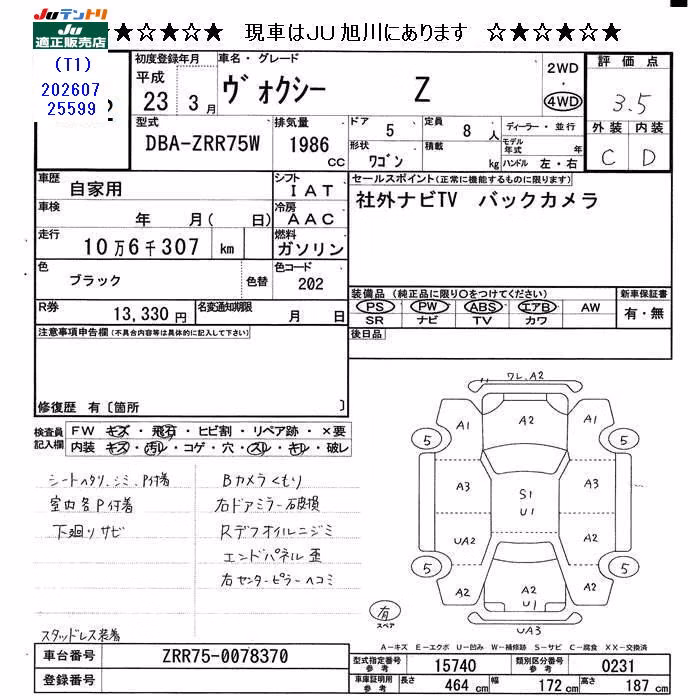 Juテントリ
Ju
適正販売店
★☆★☆★ 現車はJU旭川にあります ☆★☆★☆
(T1)
202607
25599
初度登録年月
平成
23年 3月
車名・グレード
ヴォクシー Z
2WD
・
4WD
評価点
3.5
外装 内装
C D
型式
DBA-ZRR75W
排気量
1986
cc
ドア 5
定員 8人
形状 ワゴン
積載 kg
ディーラー・並行
モデル年式 年
ハンドル 左・右
車歴
自家用
シフト
IAT
車検
年 月( 日)
冷房
AAC
走行
10万6千307 km
燃料
ガソリン
色
ブラック
色替
色コード
202
R券
13,330円
名変通知期限
月 日
セールスポイント(正常に機能するものに限ります)
社外ナビTV バックカメラ
装備品(純正品に限り○をつけてください)
PS PW ABS エアB AW
SR ナビ TV カワ
新車保証書
有・無
後日品
注意事項申告欄(不具合内容等は具体的に記入して下さい)
修復歴 有〔箇所 〕
検査員
記入欄
FW キズ・飛石・ヒビ割・リペア跡・×要
内装 キズ・汚レ・コゲ・穴・スレ・キレ・破レ
シートヘタリ、シミ、P付着
室内各P付着
下廻りサビ
Bカメラくもり
右ドアミラー破損
Rデフオイルニジミ
エンドパネル歪
右センターピラーヘコミ
スタッドレス装着
ワレ、A2
A1 A2 A2
5 5
A3 S1 A3
U1
UA2 A2
5 5
A2 A2 A2
U1
UA3
有
スペア
A-キズ E-エクボ U-凹み W-補修跡 S-サビ C-腐食 XX-交換済
車台番号
ZRR75-0078370
登録番号
型式指定番号
参考
15740
類別区分番号
参考
0231
車庫証明用
参考
長さ 464 cm
幅 172 cm
高さ 187 cm